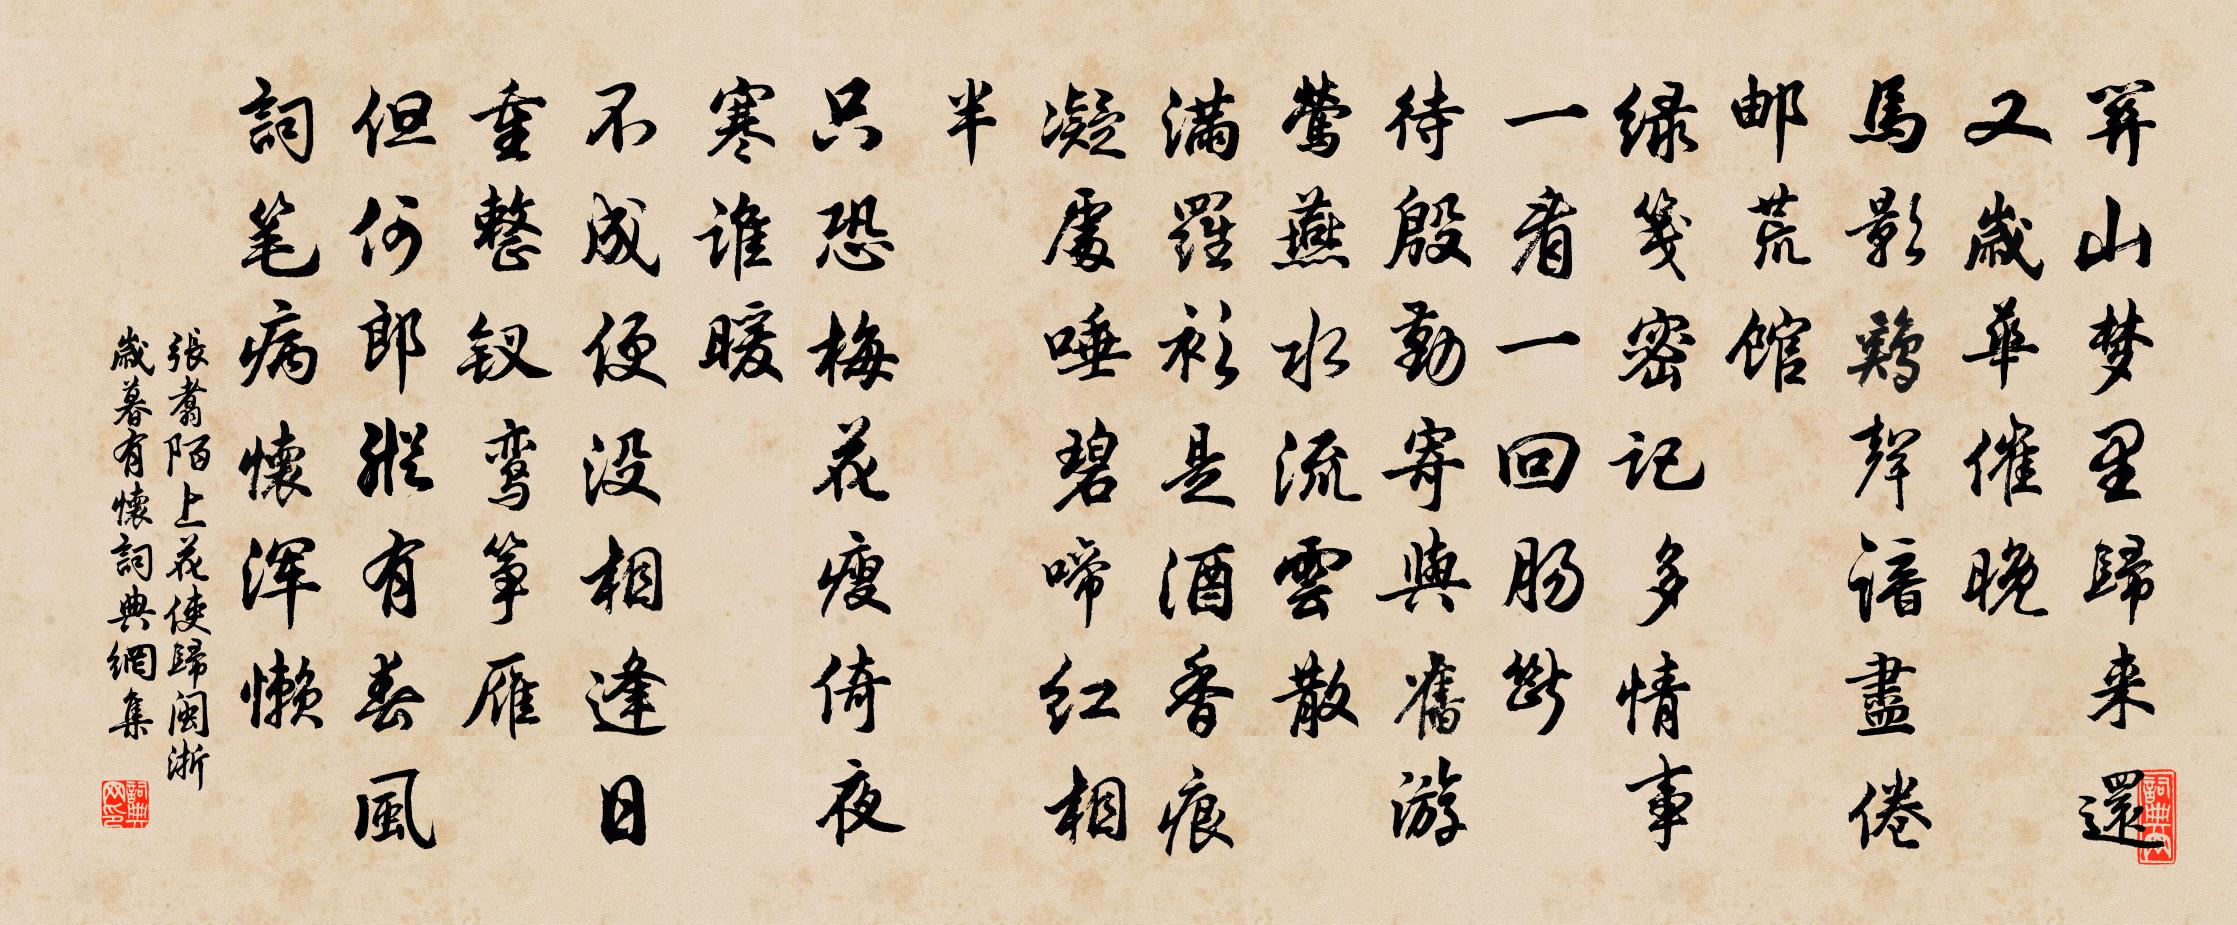 関山梦里歸来還
又歲華催晚
馬影鷄聲諳盡倦
邮荒馆
绿箋密记多情事
一看一回肠斷
待殷勤寄與舊游
莺燕水流雲散
满羅衫是酒香痕
凝處唾碧啼红相
半
只恐梅花瘦倚夜
寒谁暖
不成便没相逢日
重整钗鸾筝雁
但何郎縱有春風
詞笔病懷浑懒
張翥陌上花使歸閩浙
歲暮有懷詞典網集
詞典网
詞典网印